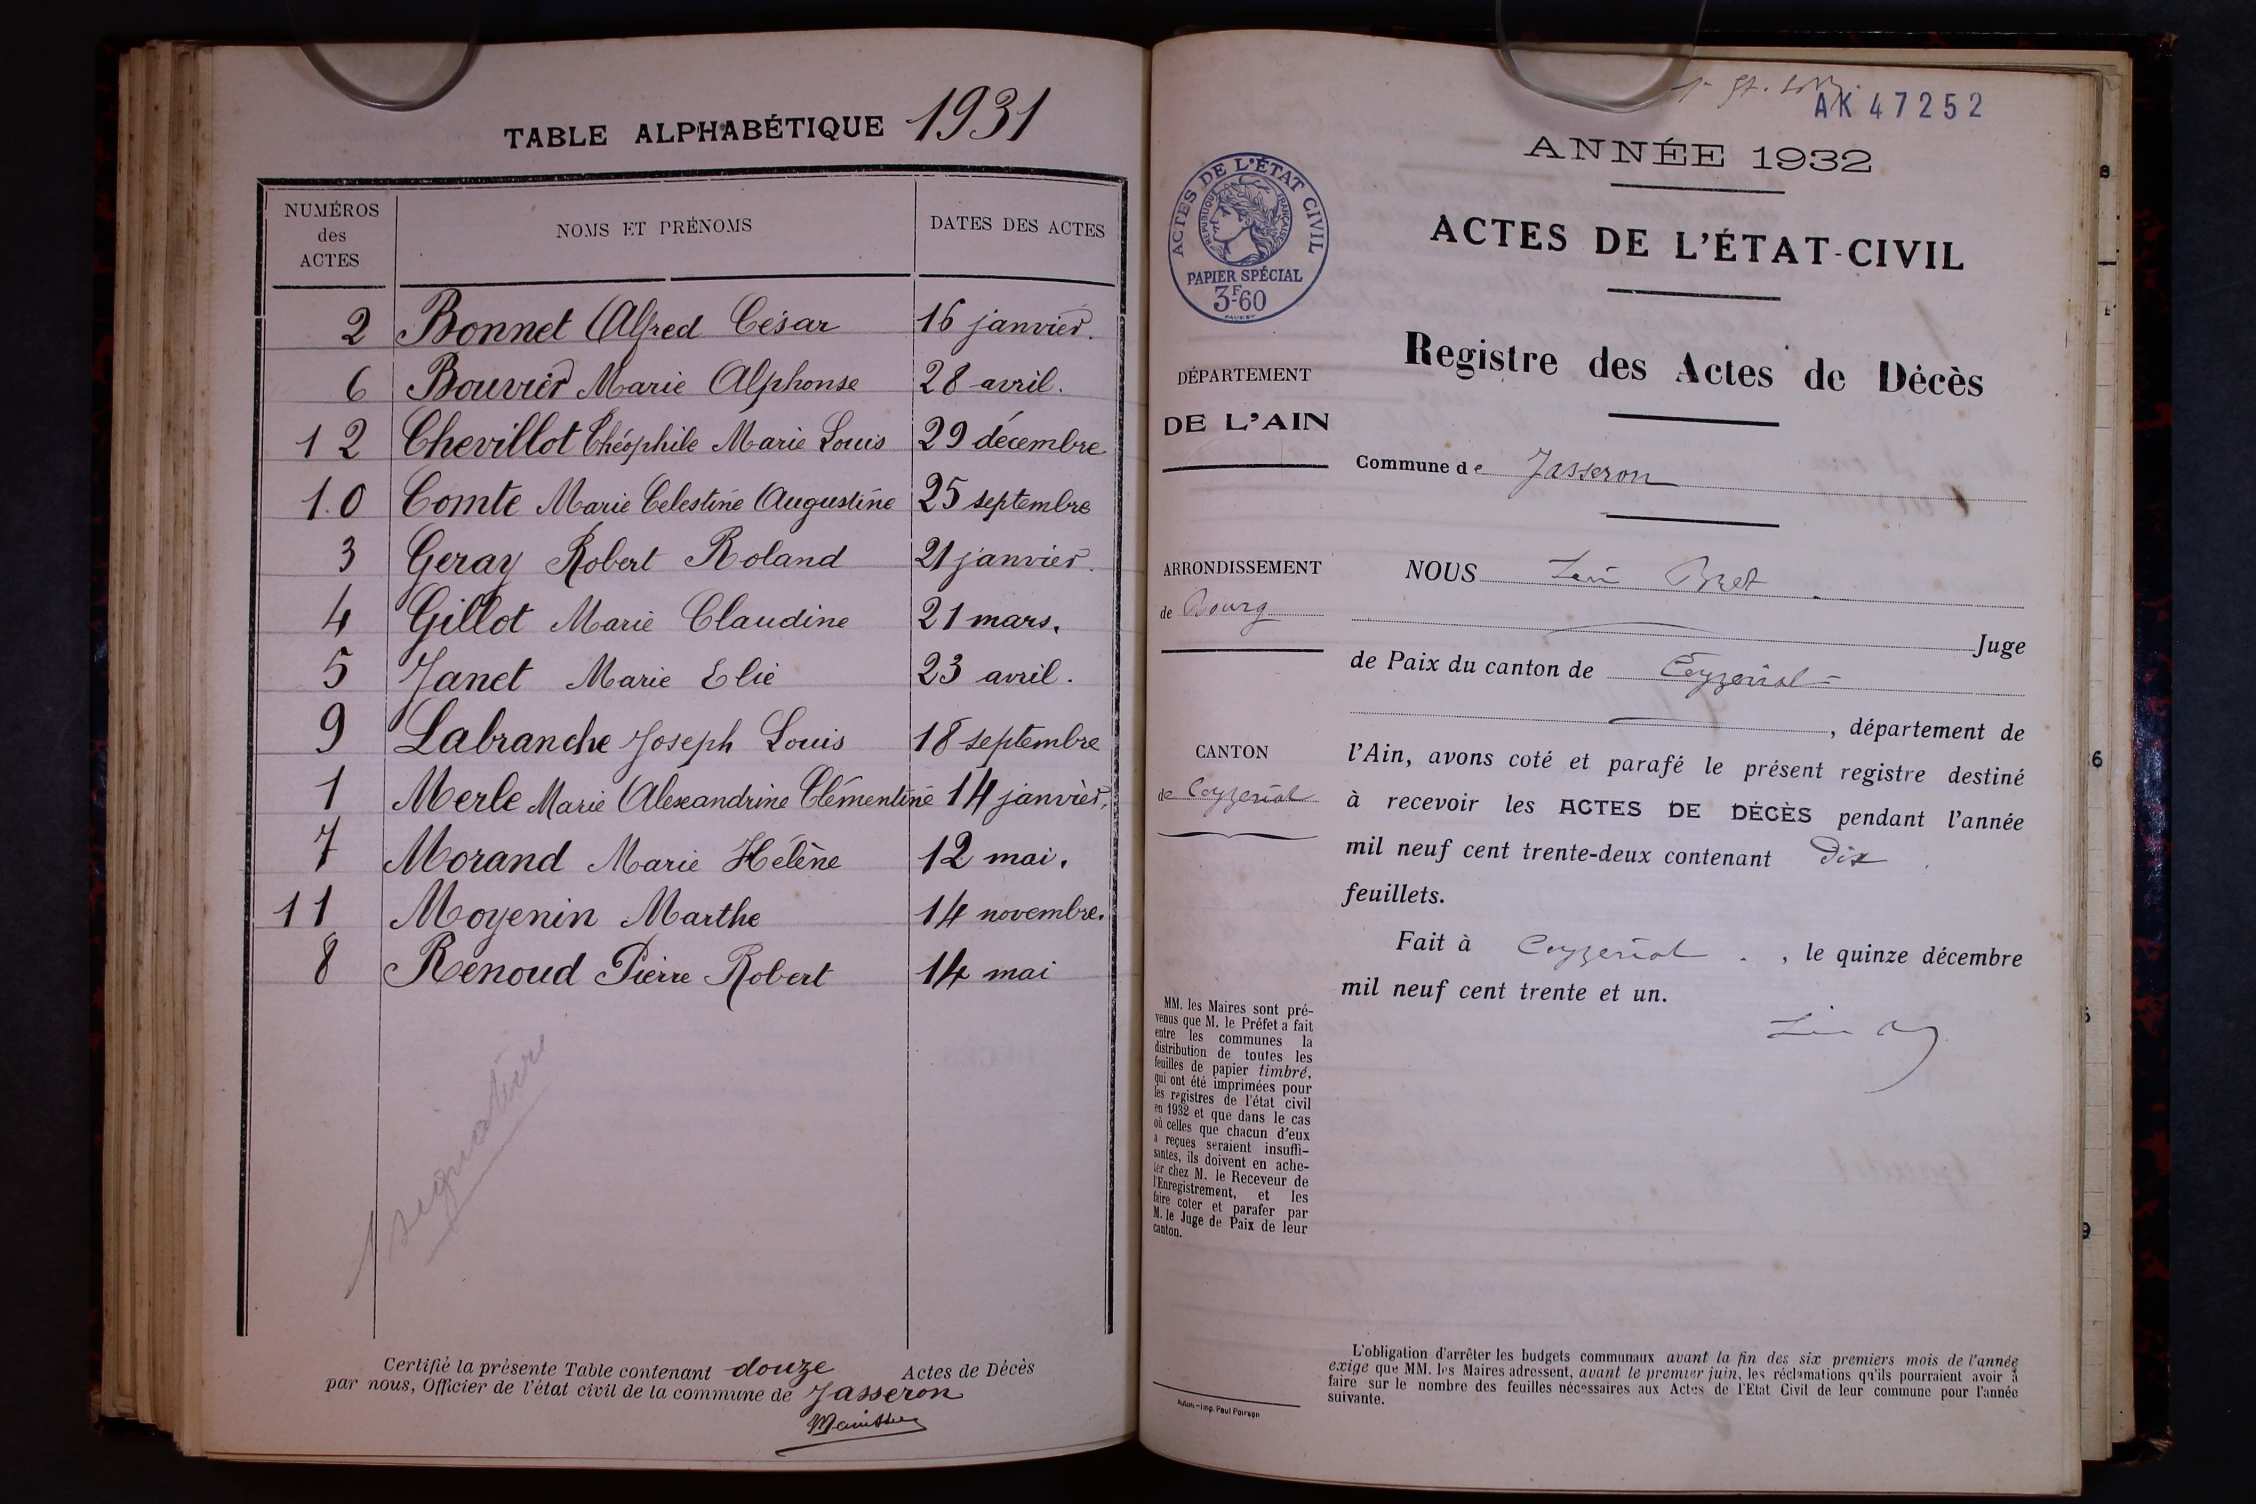 TABLE ALPHABÉTIQUE 1931
NUMÉROS
des
ACTES
NOMS ET PRÉNOMS
DATES DES ACTES
2 Bonnet Alfred César 16 janvier.
6 Bouvier Marie Alphonse 28 avril.
12 Chevillot Théophile Marie Louis 29 décembre
10 Comte Marie Celestine Augustine 25 septembre
3 Geray Robert Roland 21 janvier.
4 Gillot Marie Claudine 21 mars.
5 Janet Marie Elie 23 avril.
9 Labranche Joseph Louis 18 septembre
1 Merle Marie Alexandrine Clémentine 14 janvier.
7 Morand Marie Hélène 12 mai.
11 Moyenin Marthe 14 novembre.
8 Renoud Pierre Robert 14 mai
1 signature
Certifié la présente Table contenant douze Actes de Décès
par nous, Officier de l'état civil de la commune de Jasseron
AK 47252
ANNÉE 1932
ACTES DE L'ÉTAT-CIVIL
ACTES DE L'ÉTAT CIVIL
RÉPUBLIQUE FRANÇAISE
PAPIER SPÉCIAL
3F60
Registre des Actes de Décès
DÉPARTEMENT
DE L'AIN
Commune de Jasseron
ARRONDISSEMENT
de Bourg
NOUS Bret
Juge
de Paix du canton de Ceyzériat
, département de
CANTON
de Ceyzeriat
l'Ain, avons coté et parafé le présent registre destiné
à recevoir les ACTES DE DÉCÈS pendant l'année
mil neuf cent trente-deux contenant Dix
feuillets.
Fait à Ceyzeriat, le quinze décembre
mil neuf cent trente et un.
MM. les Maires sont pré-
venus que M. le Préfet a fait
entre les communes la
distribution de toutes les
feuilles de papier timbré,
qui ont été imprimées pour
les registres de l'état civil
en 1932 et que dans le cas
où celles que chacun d'eux
a reçues seraient insuffi-
santes, ils doivent en ache-
ter chez M. le Receveur de
l'Enregistrement, et les
faire coter et parafer par
M. le Juge de Paix de leur
canton.
L'obligation d'arrêter les budgets communaux avant la fin des six premiers mois de l'année
exige que MM. les Maires adressent, avant le premier juin, les réclamations qu'ils pourraient avoir à
faire sur le nombre des feuilles nécessaires aux Actes de l'Etat Civil de leur commune pour l'année
suivante.
Imp. Paul Poirson